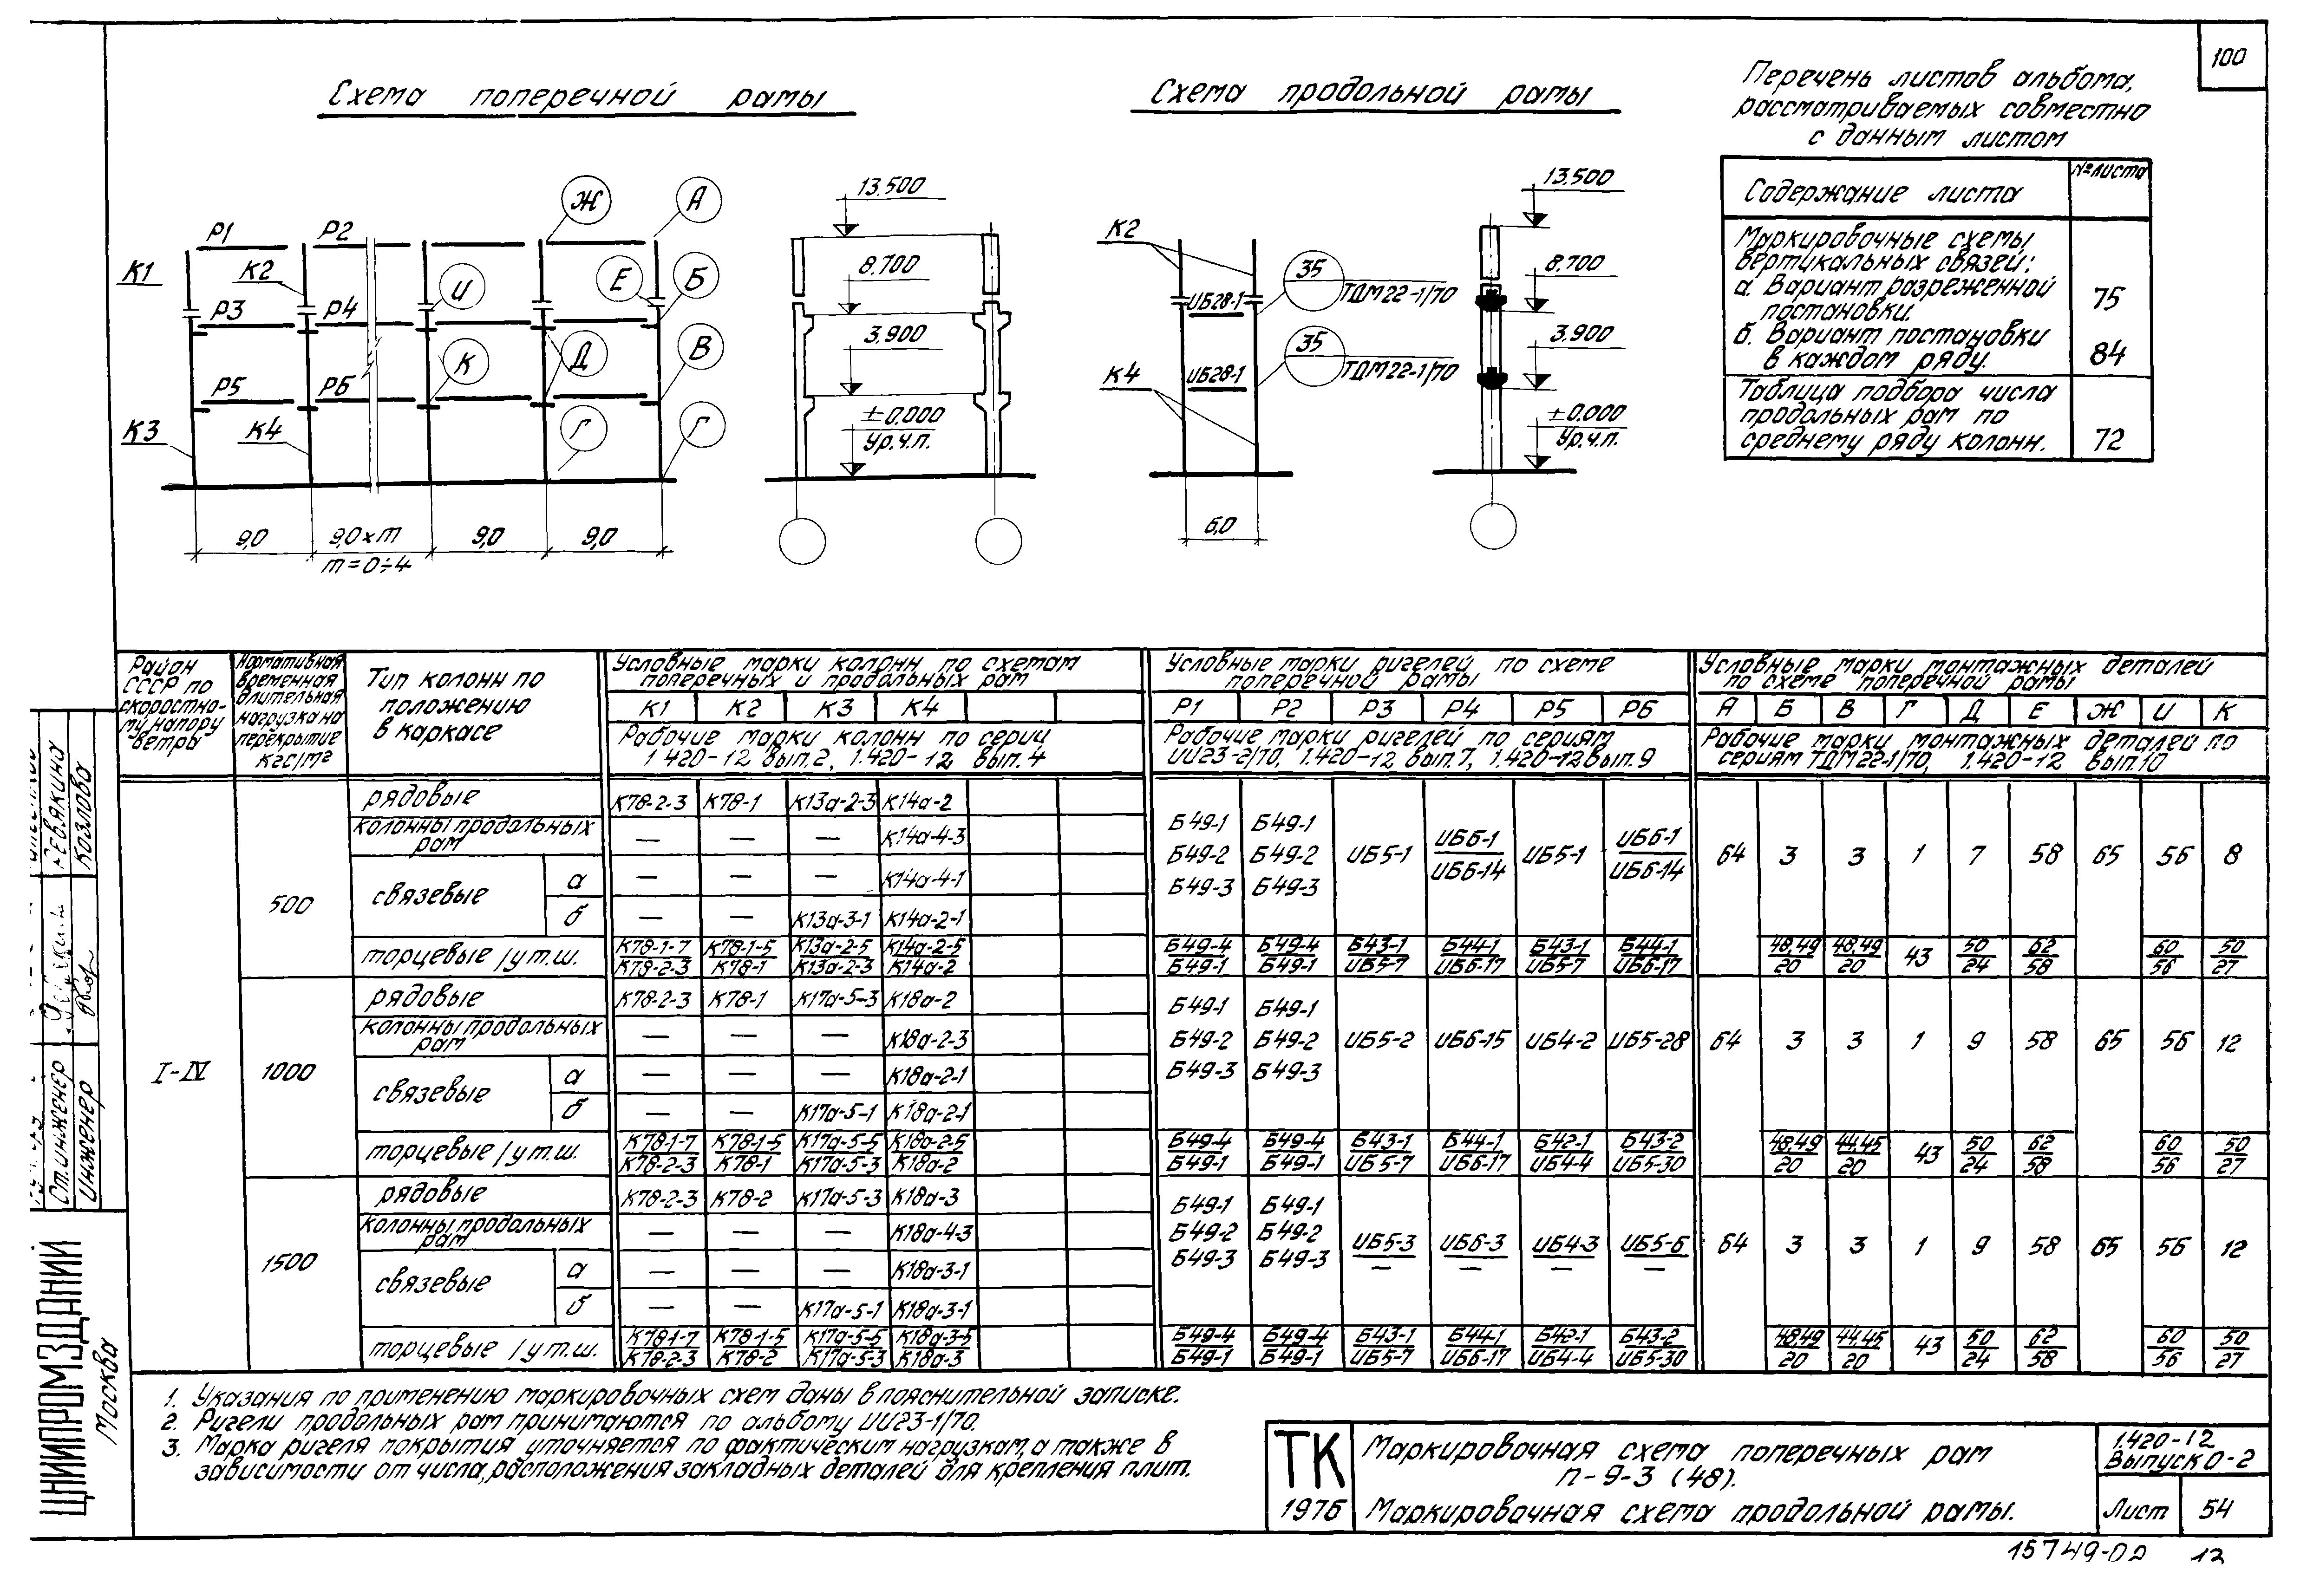 100
Схема поперечной рамы
Схема продольной рамы
Перечень листов альбома,
рассматриваемых совместно
с данным листом
Содержание листа
№ листа
Маркировочные схемы
вертикальных связей:
а. Вариант разреженной
постановки.
75
б. Вариант постановки
в каждом ряду.
84
Таблица подбора числа
продольных рам по
среднему ряду колонн.
72
Ж А
Р1 Р2
К1 К2
И Е Б
Р3 Р4
К Д В
Р5 Р6
К3 К4 Г Г
9,0 9,0×m 9,0 9,0
m=0÷4
13.500
8.700
3.900
±0.000
Ур.ч.п.
К2
ИБ28-1
35
ТДМ22-1/70
К4
ИБ28-1
35
ТДМ22-1/70
6,0
13.500
8.700
3.900
±0.000
Ур.ч.п.
Район СССР по скоростному напору ветра
Нормативная временная длительная нагрузка на перекрытие кгс/м²
Тип колонн по положению в каркасе
Условные марки колонн по схемам поперечных и продольных рам
К1 К2 К3 К4
Рабочие марки колонн по серии 1.420-12 вып.2, 1.420-12 вып.4
Условные марки ригелей по схеме поперечной рамы
Р1 Р2 Р3 Р4 Р5 Р6
Рабочие марки ригелей по сериям ИИ23-2/70, 1.420-12 вып.7, 1.420-12 вып.9
Условные марки монтажных деталей по схеме поперечной рамы
А Б В Г Д Е Ж И К
Рабочие марки монтажных деталей по сериям ТДМ22-1/70, 1.420-12 вып.10
I-IV
500
рядовые К78-2-3 К78-1 К13а-2-3 К14а-2
колонны продольных рам — — — К14а-4-3
связевые а — — — К14а-4-1
б — — К13а-3-1 К14а-2-1
Б49-1 Б49-1
Б49-2 Б49-2 ИБ5-1 ИБ6-1/ИБ6-14 ИБ5-1 ИБ6-1/ИБ6-14
Б49-3 Б49-3
64 3 3 1 7 58 65 56 8
торцевые /у т.ш. К78-1-7/К78-2-3 К78-1-5/К78-1 К13а-2-5/К13а-2-3 К14а-2-5/К14а-2 Б49-4/Б49-1 Б49-4/Б49-1 Б43-1/ИБ5-7 Б44-1/ИБ6-17 Б43-1/ИБ5-7 Б44-1/ИБ6-17 48,49/20 48,49/20 43 50/24 62/58 60/56 50/27
1000
рядовые К78-2-3 К78-1 К17а-5-3 К18а-2
колонны продольных рам — — — К18а-2-3
связевые а — — — К18а-2-1
б — — К17а-5-1 К18а-2-1
Б49-1 Б49-1
Б49-2 Б49-2 ИБ5-2 ИБ6-15 ИБ4-2 ИБ5-28
Б49-3 Б49-3
64 3 3 1 9 58 65 56 12
торцевые /у т.ш. К78-1-7/К78-2-3 К78-1-5/К78-1 К17а-5-5/К17а-5-3 К18а-2-5/К18а-2 Б49-4/Б49-1 Б49-4/Б49-1 Б43-1/ИБ5-7 Б44-1/ИБ6-17 Б42-1/ИБ4-4 Б43-2/ИБ5-30 48,49/20 44,45/20 43 50/24 62/58 60/56 50/27
1500
рядовые К78-2-3 К78-2 К17а-5-3 К18а-3
колонны продольных рам — — — К18а-4-3
связевые а — — — К18а-3-1
б — — К17а-5-1 К18а-3-1
Б49-1 Б49-1
Б49-2 Б49-2 ИБ5-3/— ИБ6-3/— ИБ4-3/— ИБ5-6/—
Б49-3 Б49-3
64 3 3 1 9 58 65 56 12
торцевые /у т.ш. К78-1-7/К78-2-3 К78-1-5/К78-2 К17а-5-5/К17а-5-3 К18а-3-5/К18а-3 Б49-4/Б49-1 Б49-4/Б49-1 Б43-1/ИБ5-7 Б44-1/ИБ6-17 Б42-1/ИБ4-4 Б43-2/ИБ5-30 48,49/20 44,45/20 43 50/24 62/58 60/56 50/27
1. Указания по применению маркировочных схем даны в пояснительной записке.
2. Ригели продольных рам принимаются по альбому ИИ23-1/70.
3. Марка ригеля покрытия уточняется по фактическим нагрузкам, а также в
зависимости от числа, расположения закладных деталей для крепления плит.
ТК
1976
Маркировочная схема поперечных рам
п-9-3 (48).
Маркировочная схема продольной рамы.
1.420-12
Выпуск 0-2
Лист 54
15749-02 12
Ревякина
Козлова
Ст.инженер
Инженер
ЦНИИПРОМЗДАНИЙ
Москва